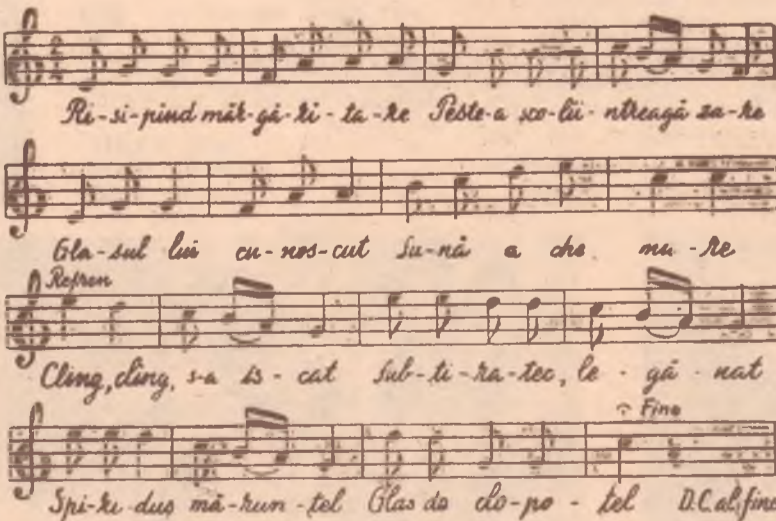 Ri-si-pind măr-gă-ri-ta-re Peste-a sco-lii-ntreagă za-re
Gla-sul lui cu-nos-cut Su-nă a che mu-re
Refren
Cling, cling, s-a is-cat Sub-ti-ra-tec, le-gă-nat
Fine
Spi-ri-duș mă-run-tel Glas de clo-po-tel D.C. al fine